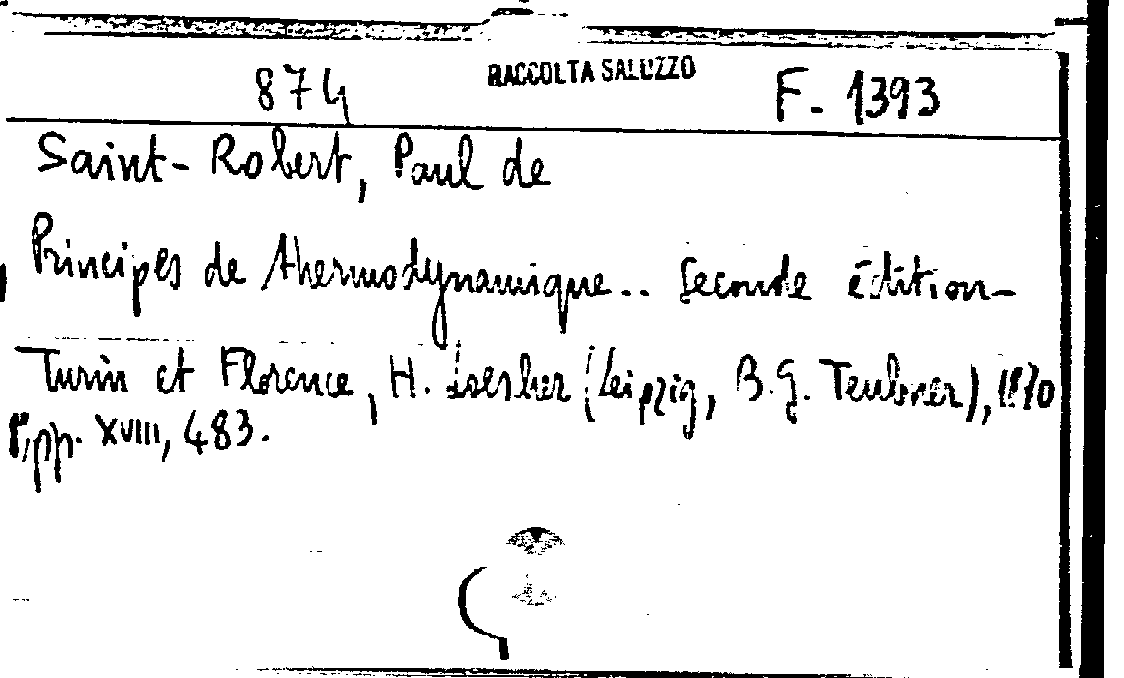 874 RACCOLTA SALUZZO F- 1393
Saint-Robert, Paul de
Principes de thermodynamique.. Seconde édition-
Turin et Florence, H. Loesher (Leipzig, B.G. Teubner), 1870
8°, pp. XVIII, 483.